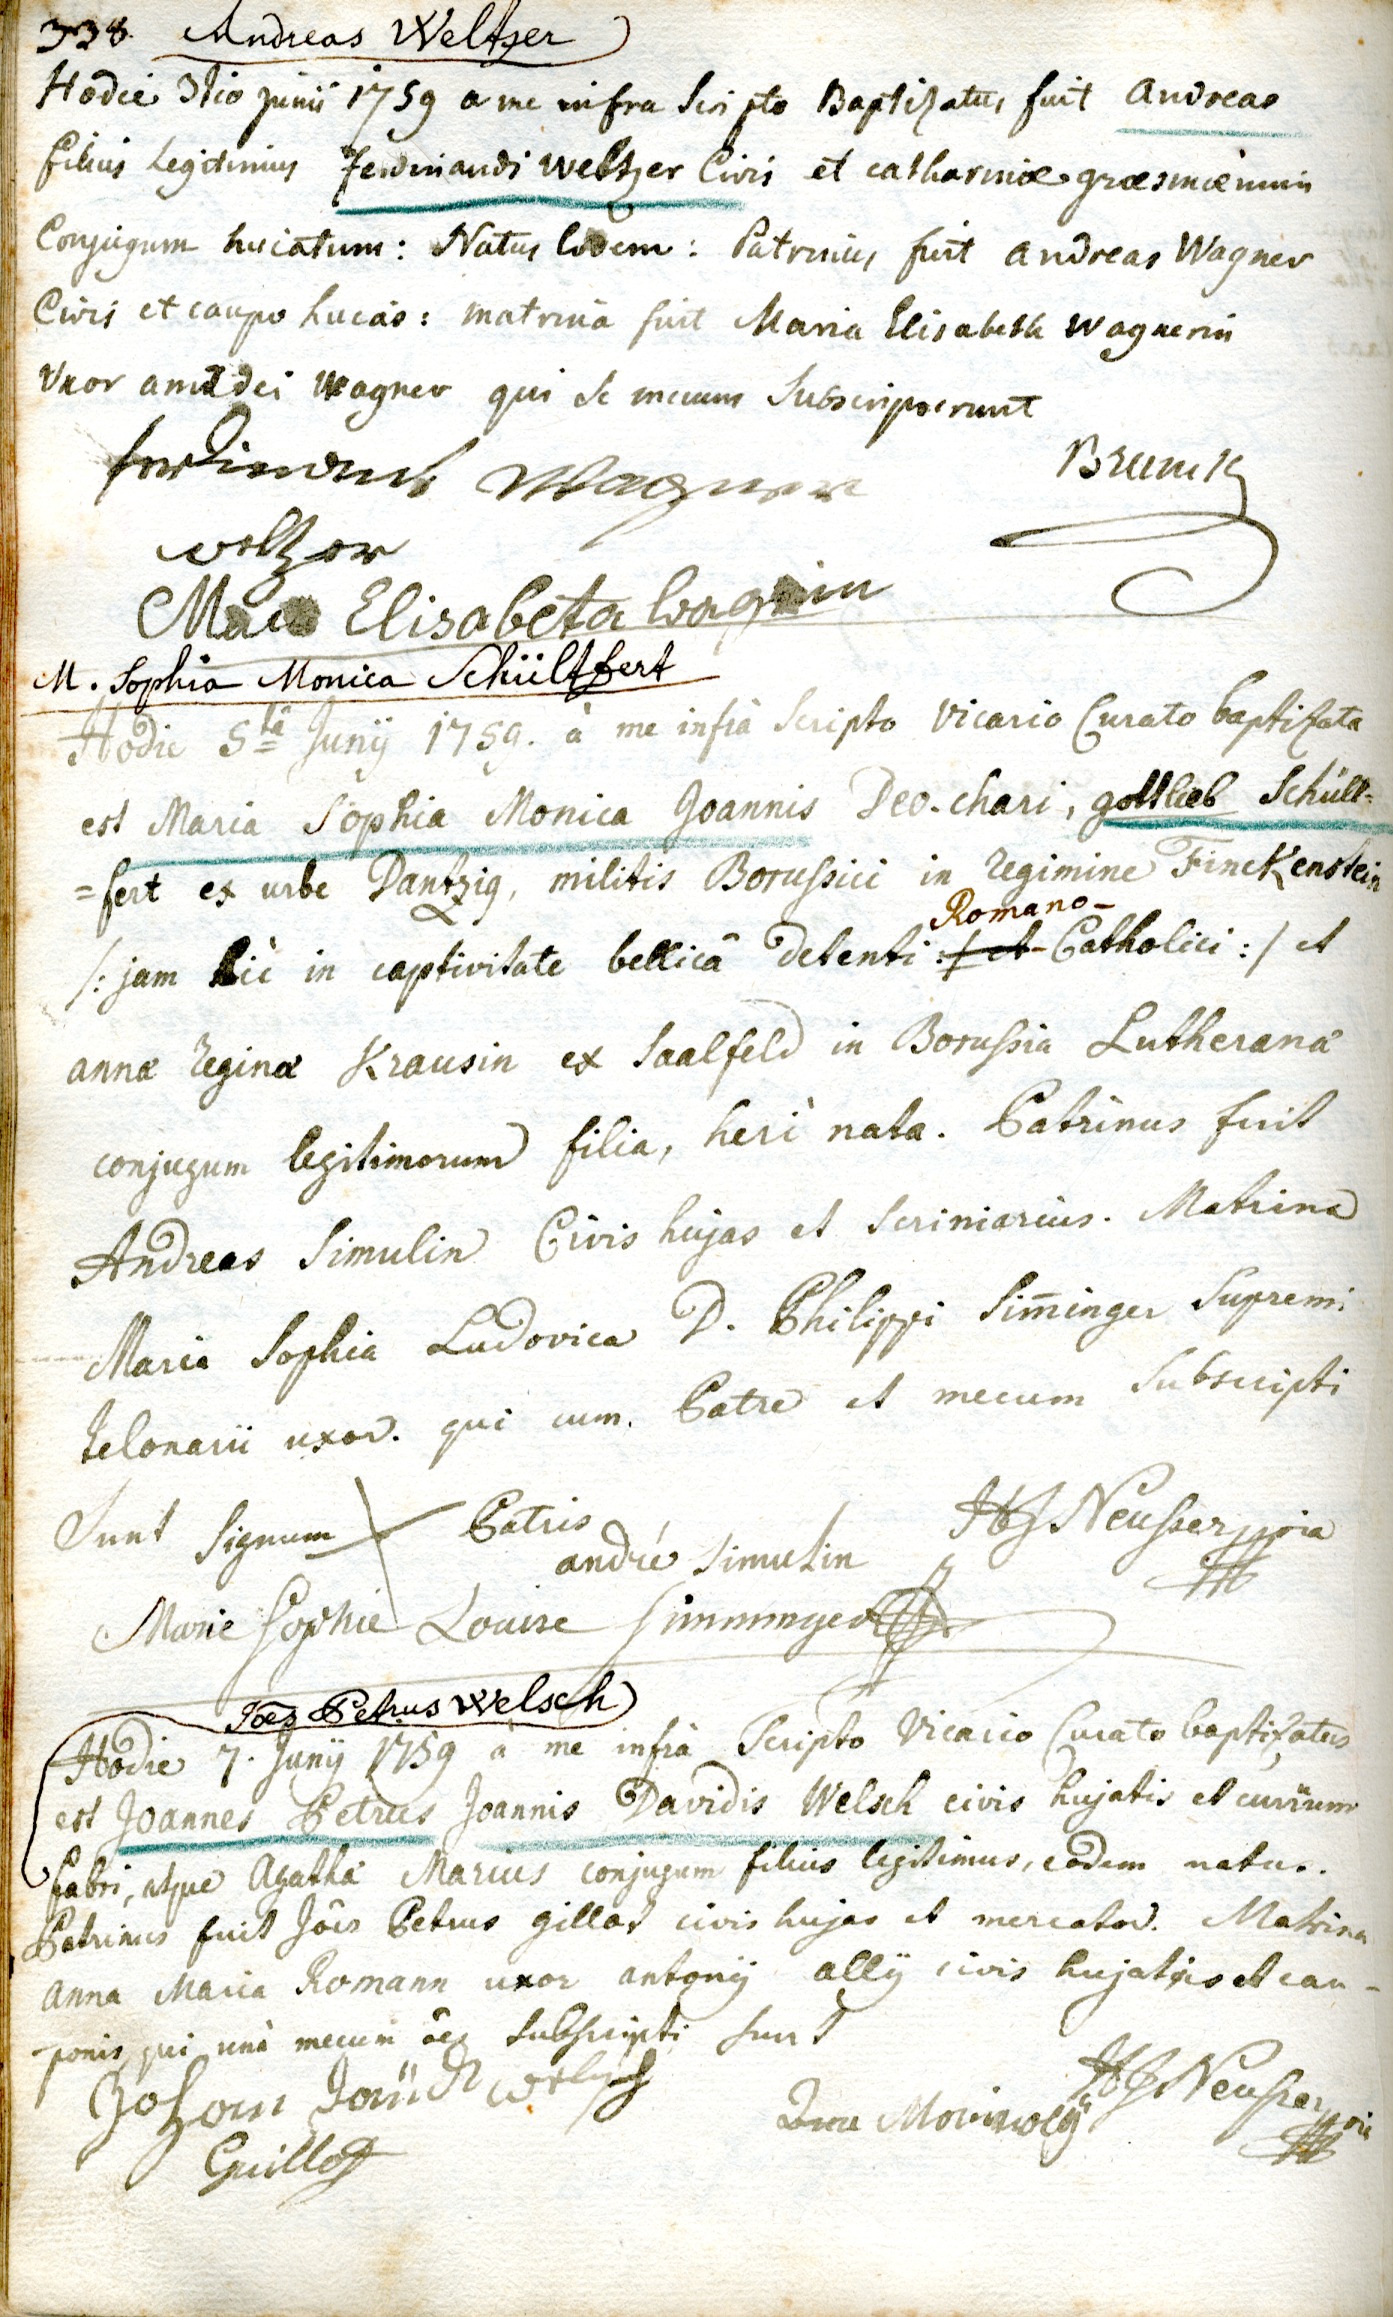 338. Andreas Weltzer
Hodie 3tio junii 1759 a me infra scripto Baptizatus fuit andreas
filius legitimus ferdinandi weltzer Civis et catharinæ græsmiænnin
Conjugum huiatum: Natus Eodem: Patrinus fuit andreas Wagner
Civis et caupo huias: matrina fuit Maria Elisabeth wagnerin
Uxor amadei wagner qui se mecum subscripserunt
ferdinand Wagner Brunck
weltzer
Maria Elisabeta wagnerin
M. Sophia Monica Schültfert
Hodie 5tâ Junÿ 1759. à me infrà scripto vicario Curato baptizata
est Maria Sophia Monica Joannis Deo-chari, gottlieb Schült=
=fert ex urbe Dantzig, militis Borussici in regimine Finckenstein
Romano-
/: jam hic in captivitate bellicâ detenti :/ et Catholici :/ et
annæ reginæ Krausin ex Saalfeld in Borussia Lutheranæ
conjugum legitimorum filia, heri nata. Patrinus fuit
Andreas Simulin Civis hujas et scriniarius. Matrina
Maria Sophia Ludovica D. Philippi Sim̄inger Supremi
telonarii uxor. qui cum Patre et mecum subscripti
Sunt signum Patris Neusser ppria
andré simulin
Marie Sophie Louise Simminger
Jões Petrus Welsch
Hodie 7. Junÿ 1759 à me infrà scripto Vicario Curato baptizatus
est Joannes Petrus Joannis Davidis Welsch civis hujatis et curruum
fabri, atque Agathæ Marius conjugum filius legitimus, eodem natus.
Patrinus fuit Jôes Petrus gillot civis hujas et mercator. Matrina
anna Maria Romann uxor antonÿ allÿ civis hujatis et cau-
ponis, qui unà mecum subscripti sunt
Johan welsch Neusser ppria
Guillot